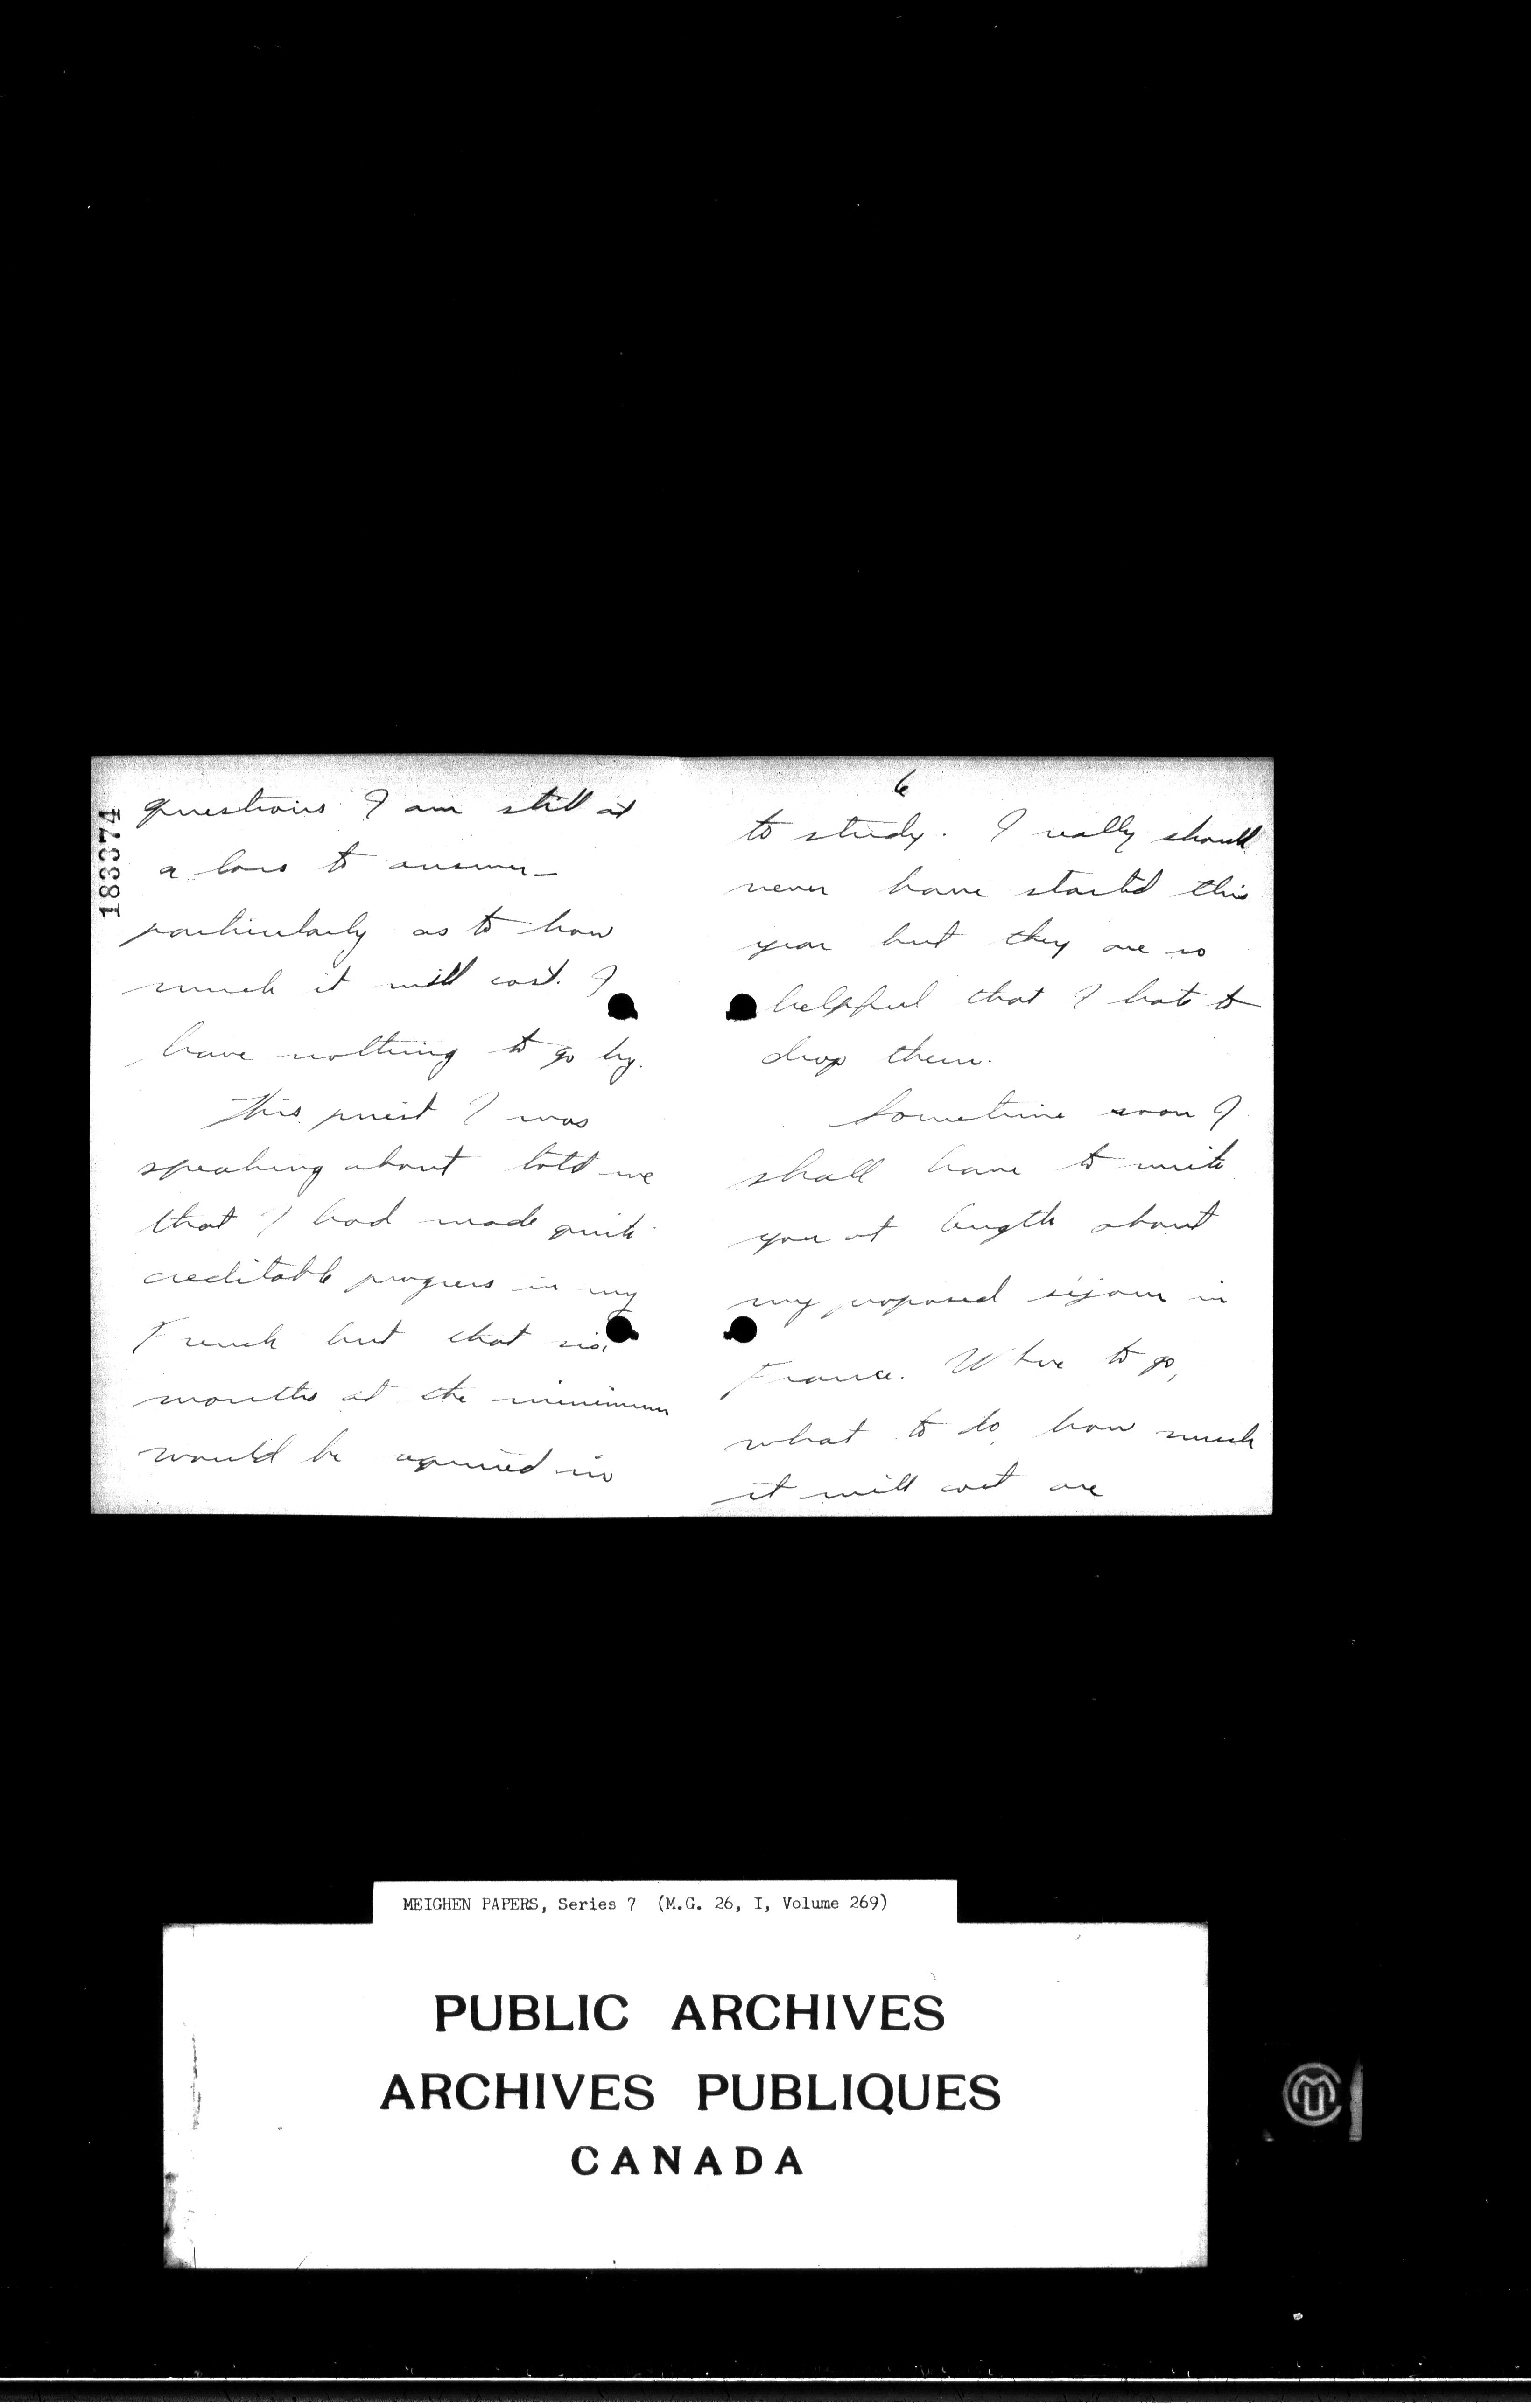 183374
questions I am still at
a loss to answer –
particularly as to how
much it will cost. I
have nothing to go by.
This priest I was
speaking about told me
that I had made quite
creditable progress in my
French but that six
months at the minimum
would be required in
6
to study. I really should
never have started this
year but they are so
helpful that I hate to
drop them.
Sometime soon I
shall have to write
you at length about
my proposed séjour in
France. Where to go,
what to do, how much
it will cost are
MEIGHEN PAPERS, Series 7 (M.G. 26, I, Volume 269)
PUBLIC ARCHIVES
ARCHIVES PUBLIQUES
CANADA